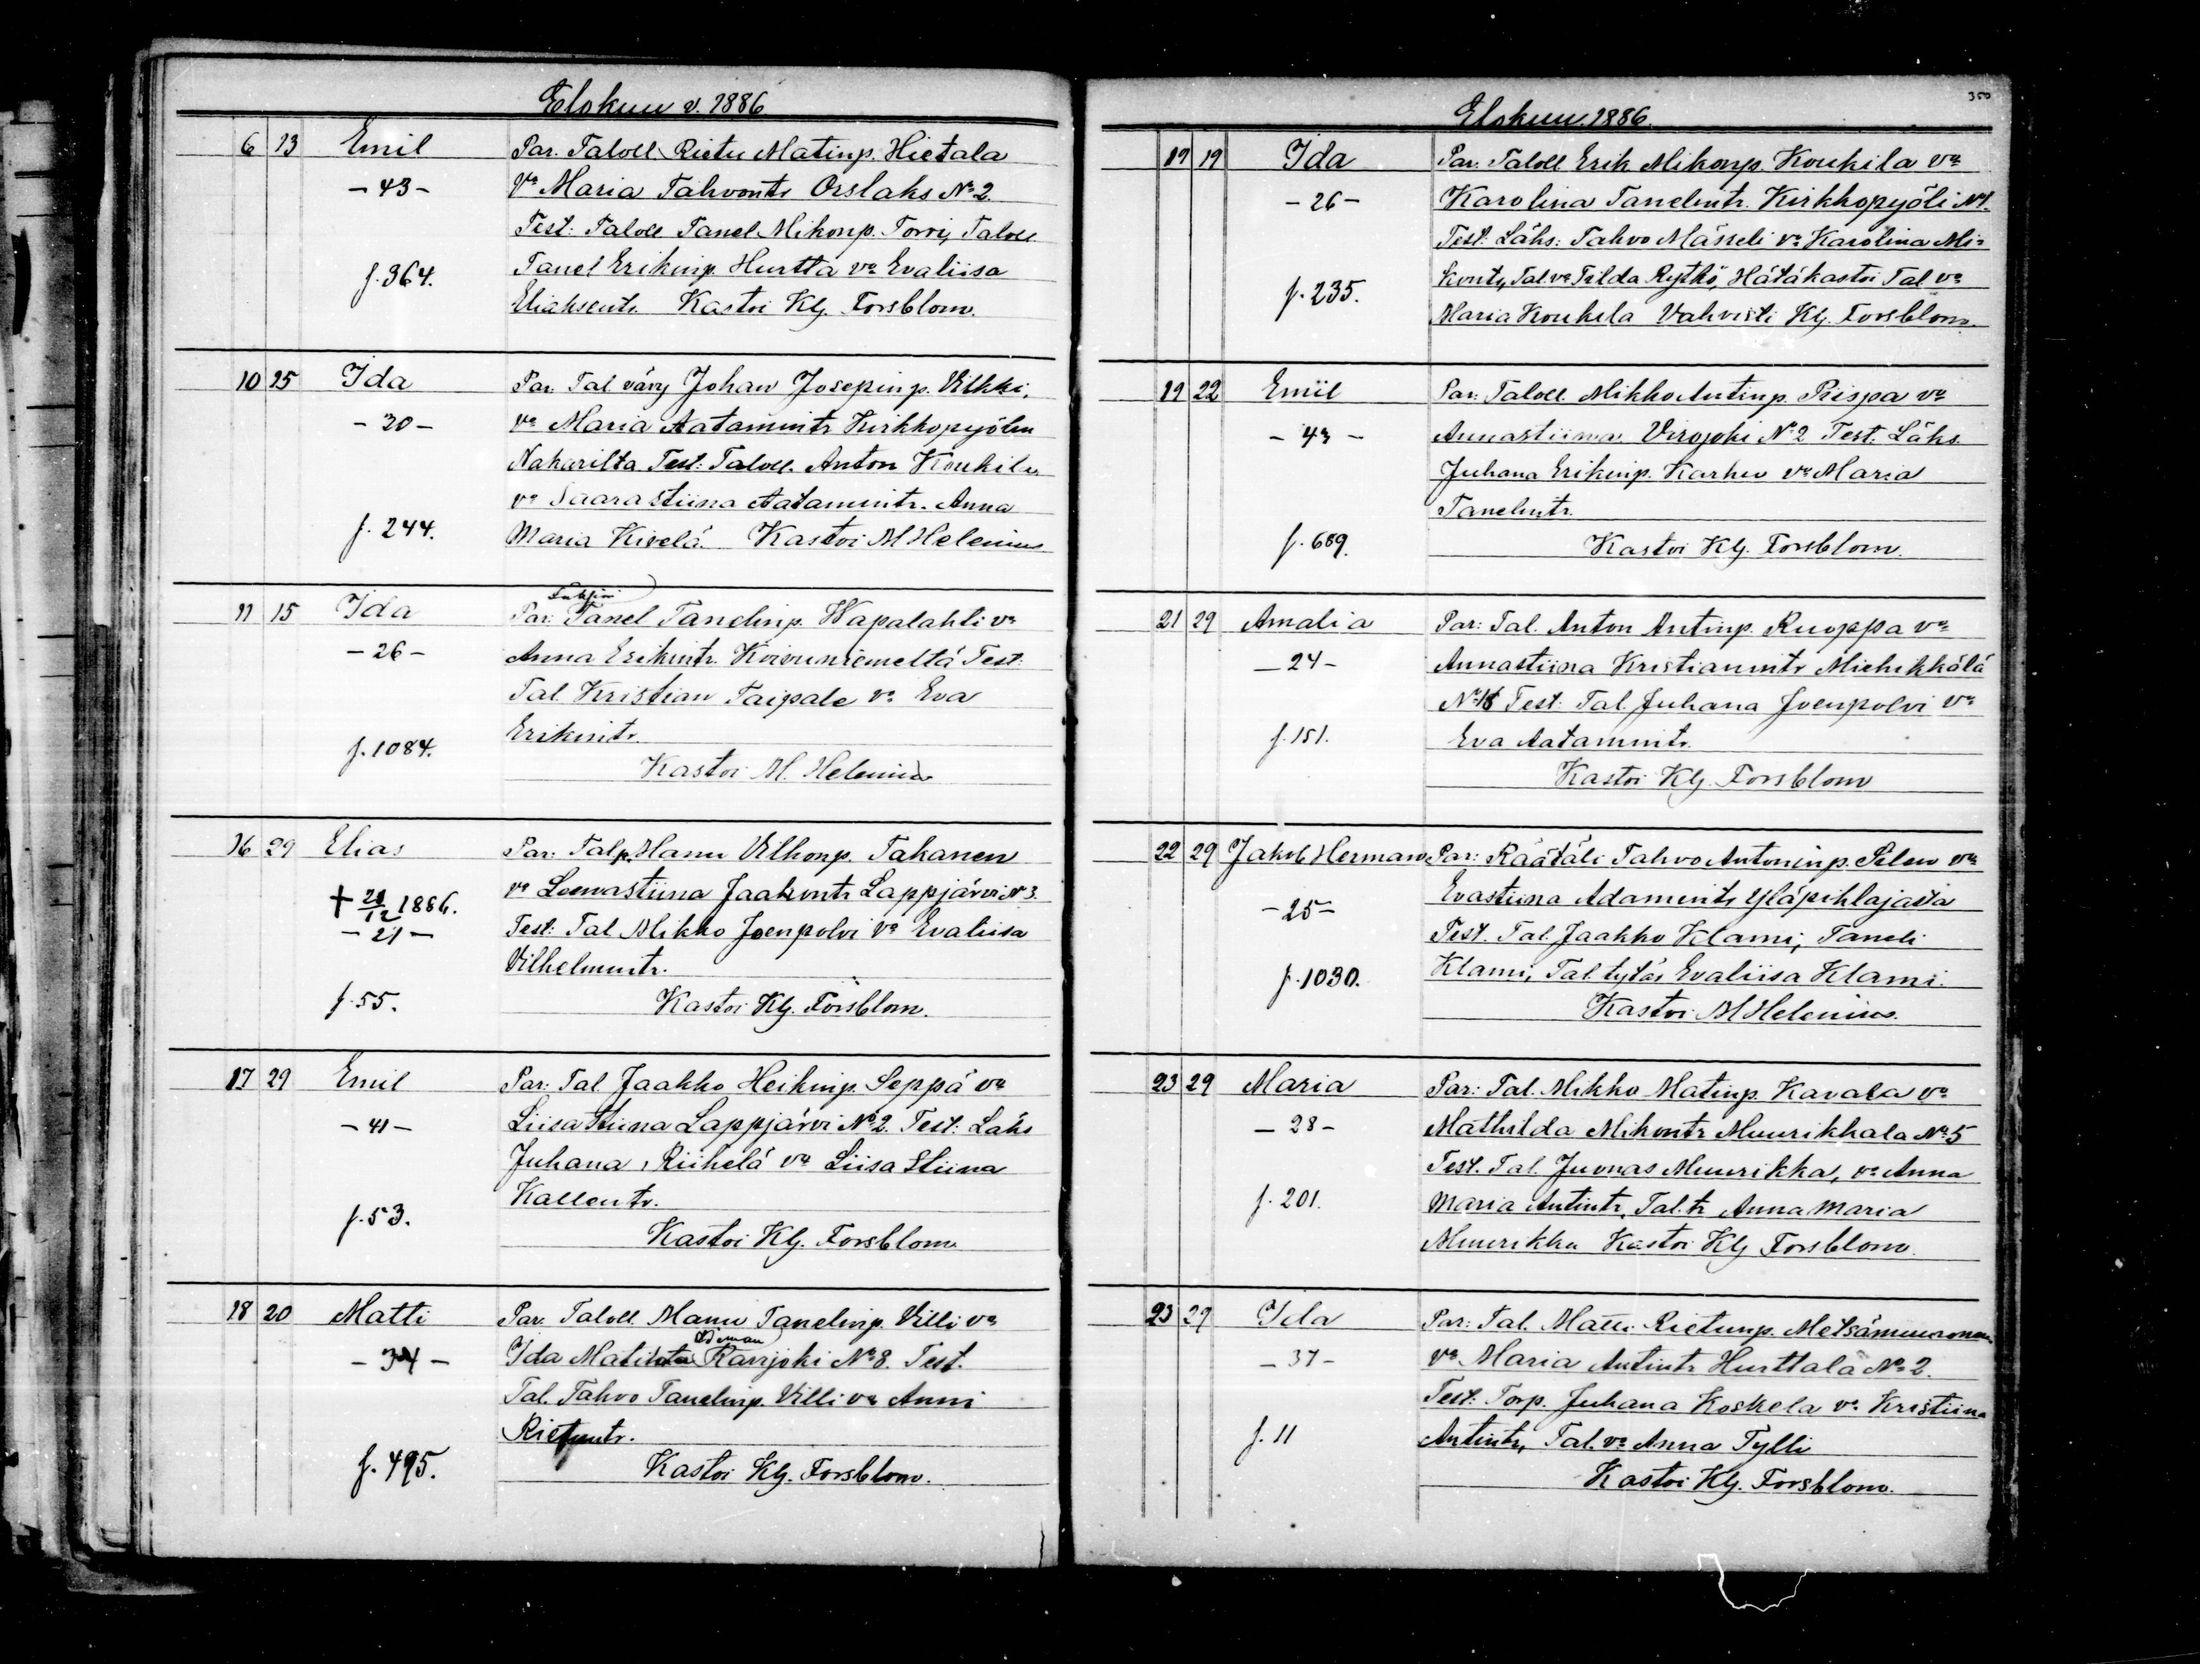 Elokuu v. 1886
6 13 Emil Par. Taloll. Rietu Matinp. Hietala
- 43 - va Maria Tahvontr Orslahs No 2.
Test: Taloll Tanel Mikonp. Torvi, Taloll
f. 364. Tanel Erikinp. Hurtta va Evaliisa
Eliaksentr. Kastoi Klj. Forsblom.
10 15 Ida Par. Tal vävy Johan Josepinp. Vilkki,
- 30 - va Maria Aatamintr Kirkkopyölin
Naharilta Test: Taloll. Anton Koukila
va Saarastiina Aatamintr. Anna
f. 244. Maria Kivelä. Kastoi M Helenius
11 15 Ida Par: Tanel Tanelinp. Hapalahti va
- 26 - Anna Erikintr. Koivuniemeltä Test:
Tal. Kristian Taipale va Eva
f. 1084. Erikintr.
Kastoi M. Helenius
16 29 Elias Par: Talp. Manu Vilhonp. Takanen
† 21/12 1886. va Leenastiina Jaakontr Lappjärvi No 3.
- 21 - Test: Tal Mikko Joenpolvi va Evaliisa
Vilhelmintr.
f. 55. Kastoi Klj. Forsblom.
17 29 Emil Par: Tal Jaakko Heikinp. Seppä va
- 41 - Liisa Stiina Lappjärvi No 2. Test: Läks
Juhana Riihelä va Liisa Stiina
f. 53. Kallentr.
Kastoi Klj. Forsblom
18 20 Matti Par. Taloll. Manu Tanelinp. Villi va
- 34 - Ida Matintr Ravijoki No 8. Test.
Tal. Tahvo Tanelinp. Villi va Anni
Rietuntr.
f. 495. Kastoi Klj. Forsblom.
350
Elokuu. 1886.
19 19 Ida Par. Taloll Erik Mikonp. Koukila va
- 26 - Karolina Tanelintr. Kirkkopyöli No 1.
Test: Läks: Tahvo Mässeli va Karolina Mi-
f. 235. kontr, Tal va Tilda Rytkö, Hätäkastoi Tal va
Maria Koukila Vahvisti Klj. Forsblom.
19 22 Emil Par: Taloll. Mikko Antinp. Piispa va
- 43 - Annastiina Virojoki No 2 Test. Läks.
Juhana Erikinp. Karhu va Maria
Tanelintr.
f. 689. Kastoi Klj. Forsblom.
21 29 Amalia Par: Tal. Anton Antinp. Ruoppa va
- 24 - Annastiina Kristianintr Miehikkälä
No 18 Test: Tal. Juhana Joenpolvi va
f. 151. Eva Aatamintr.
Kastoi Klj. Forsblom
22 29 Jakob Herman Par: Räätäli Tahvo Antoninp. Silen va
- 25 - Evastiina Adamintr Yläpihlajasta
Test. Tal. Jaakko Klami, Taneli
f. 1030. Klami, Tal. tytär Evaliisa Klami.
Kastoi M Helenius.
23 29 Maria Par: Tal. Mikko Matinp. Kavala va
- 28 - Mathilda Mikontr Muurikkala No 5
Test. Tal. Juonas Muurikka, va Anna
f. 201. Maria Antintr, Tal. tr Anna Maria
Muurikka Kastoi Klj Forsblom.
23 29 Ida Par: Tal. Matti Rietunp. Metsämuuronen
- 37 - va Maria Antintr Hurttala No 2.
Test: Torp. Juhana Koskela va Kristiina
f. 11 Antintr, Tal. va Anna Tylli
Kastoi Klj. Forsblom.